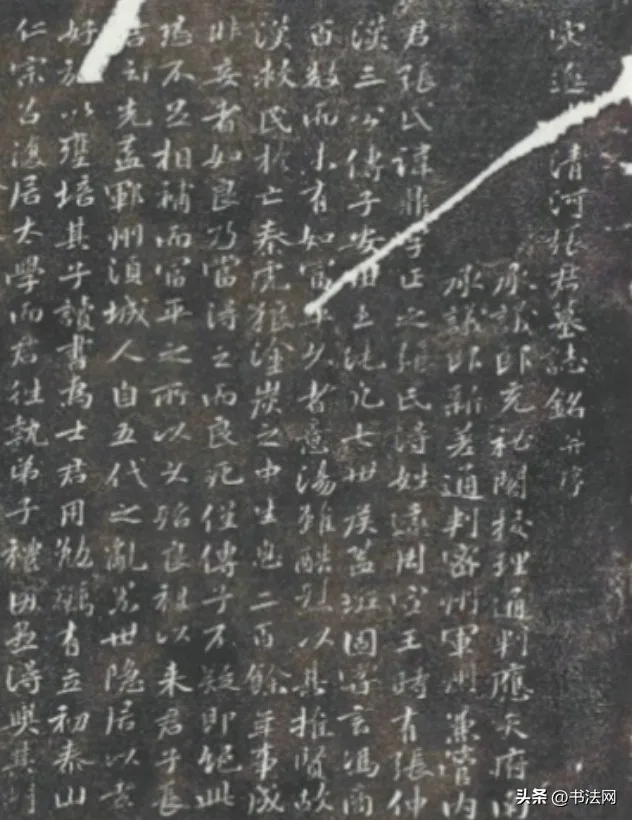 宋進清河張君墓誌銘并序
承議郎充祕閣校理通判應天府南
承議郎新差通判密州軍州兼管內
君張氏諱鼎字正之張氏得姓遠周宣王時有張仲
漢三公傳子安世至純凡七世侯蓋班固嘗言馮商
百數而未有如富平久者意湯雖酷烈以其推賢故
漢救民於亡秦虎狼塗炭之中生息二百餘年事成
非妄者如良乃當得之而良死僅傳子不疑即絕此
過不足相補而富平之所以久殆良祖以來君子長
先蓋鄆州湏城人自五代之亂累世隱居以
好施以壅培其子讀書為士君用勉勵有立初泰山
仁宗召還居太學而君往執弟子禮因盡得與其
头条 @书法网